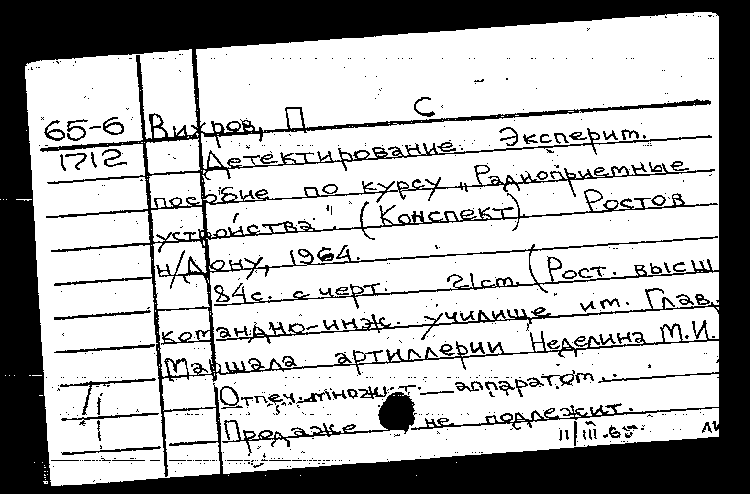 С
65-6 Вихров, П
1712 Детектирование. Эксперит.
пособие по курсу „Радиоприемные
устройства". (Конспект). Ростов
н/Дону, 1964.
84с. с черт. 21ст. (Рост. высш
командно-инж. училище им. Глав.
Маршала артиллерии Неделина М.И.
Отпеч. множит. аппаратом.
Продаже не подлежит.
11/III-65